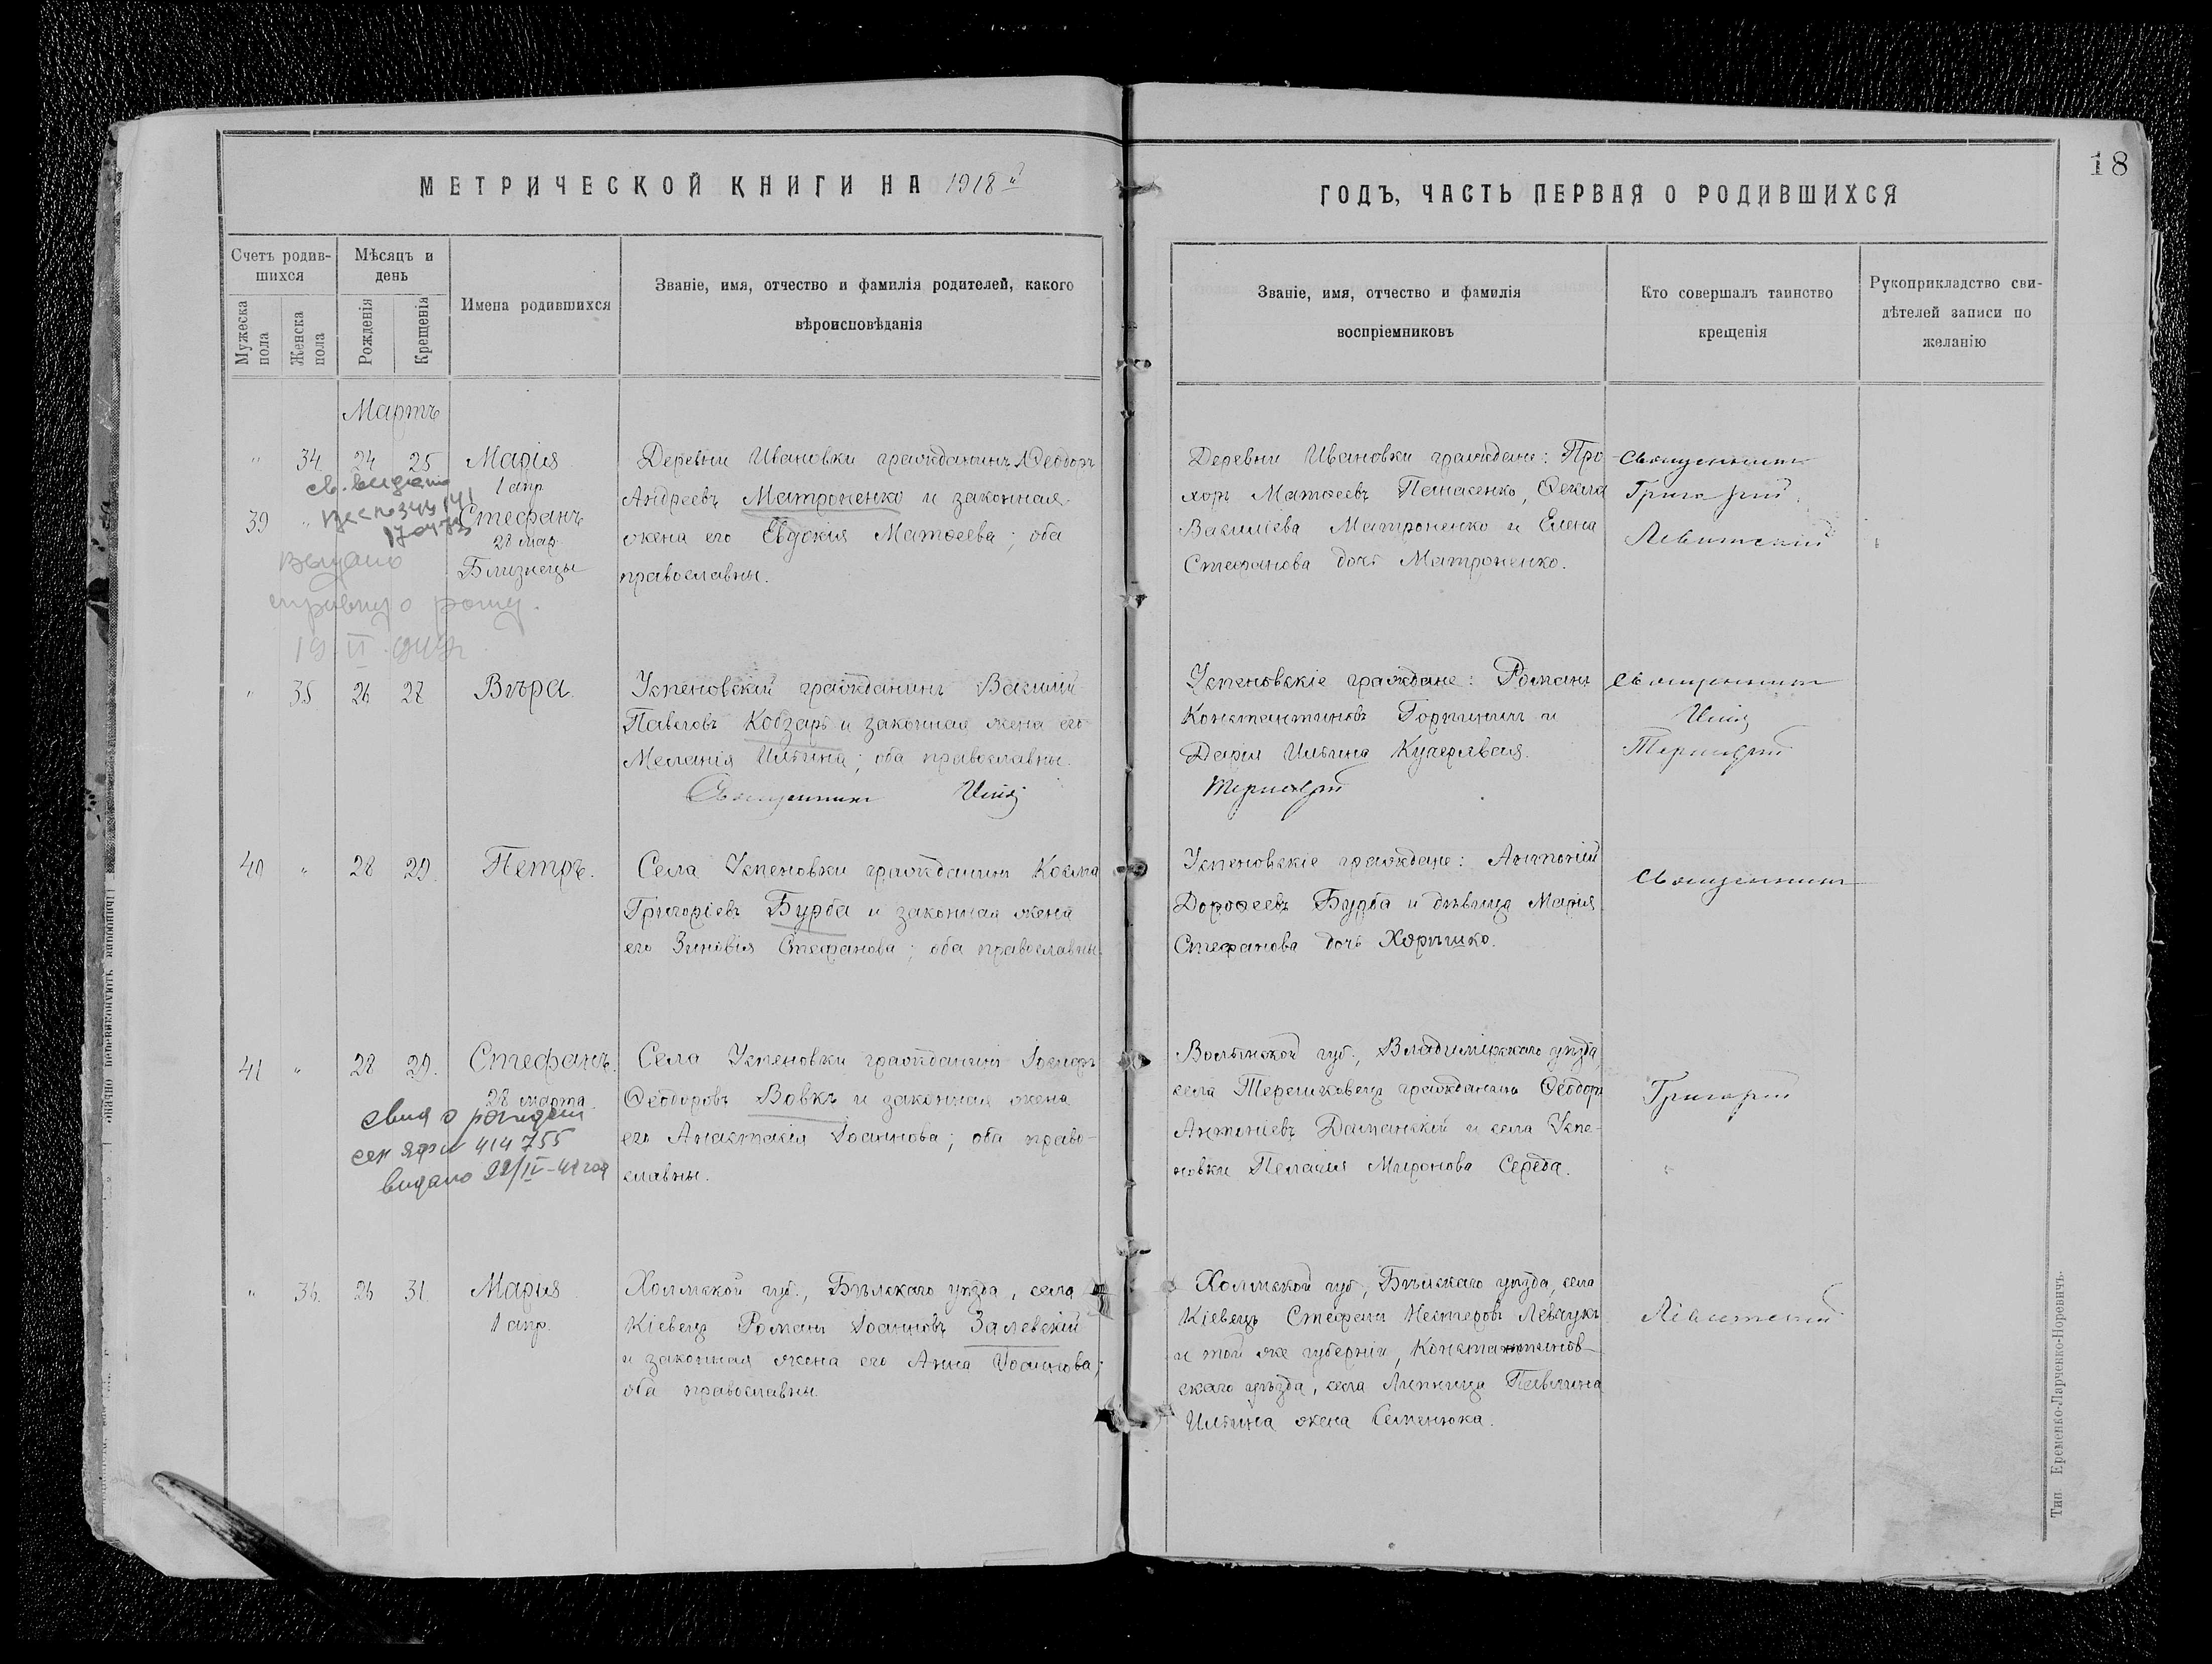 18
МЕТРИЧЕСКОЙ КНИГИ НА 1918й
ГОДЪ, ЧАСТЬ ПЕРВАЯ О РОДИВШИХСЯ
Счетъ родив-
шихся
Мѣсяцъ и
день
Мужеска
пола
Женска
пола
Рожденія
Крещенія
Имена родившихся
Званіе, имя, отчество и фамилія родителей, какого
вѣроисповѣданія
Званіе, имя, отчество и фамилія
воспріемниковъ
Кто совершалъ таинство
крещенія
Рукоприкладство сви-
дѣтелей записи по
желанію
Мартъ
" 34 24 25 Марія
1 апр
39 " Стефанъ
28 мар
Близнецы
Деревни Ивановки гражданинъ Ѳеодоръ
Андреевъ Матроненко и законная
жена его Евдокія Матѳеева; оба
православны.
Деревни Ивановки граждане: Про
хоръ Матѳеевъ Панасенко, Ѳекла
Василіева Матроненко и Елена
Стефанова дочь Матроненко.
Священникъ
Григорій
Левитскій
" 35 26 27 Вѣра.
Успеновскій гражданинъ Василій
Павловъ Кобзарь и законная жена его
Меланія Ильина; оба православны.
Священникъ Илія
Успеновскіе граждане: Романъ
Константиновъ Горпиничъ и
Дарія Ильина Кучерявая.
Священникъ
Илія
40 " 28 29. Петръ.
Села Успеновки гражданинъ Косма
Григоріевъ Бурба и законная жена
его Зиновія Стефанова; оба православны.
Успеновскіе граждане: Антоній
Дорофеевъ Бурба и дѣвица Марія
Стефанова дочь Хоришко.
Священникъ
41 " 28 29. Стефанъ.
28 марта
414755
видано 22/IV-41 год
Села Успеновки гражданинъ Іосифъ
Ѳеодоровъ Вовкъ и законная жена
его Анастасія Іоаннова; оба право-
славны.
Волынской губ., Владимірскаго уѣзда,
села Терешковецъ гражданинъ Ѳеодоръ
Антоніевъ Даманскій и села Успе-
новки Пелагія Миронова Середа.
Григорій
" 36. 26 31. Марія
1 апр.
Холмской губ., Бѣлскаго уѣзда, села
Кіевецъ Романъ Іоанновъ Залевскій
и законная жена его Анна Іоаннова;
оба православны
Холмской губ., Бѣлскаго уѣзда, села
Кіевецъ Стефанъ Нестеровъ Левчукъ
и той же губерніи, Константинов-
скаго уѣзда, села Липница Павлина
Ильина жена Семенюка.
Левитскій
Тип. Еременко-Ларченко-Норевичъ.